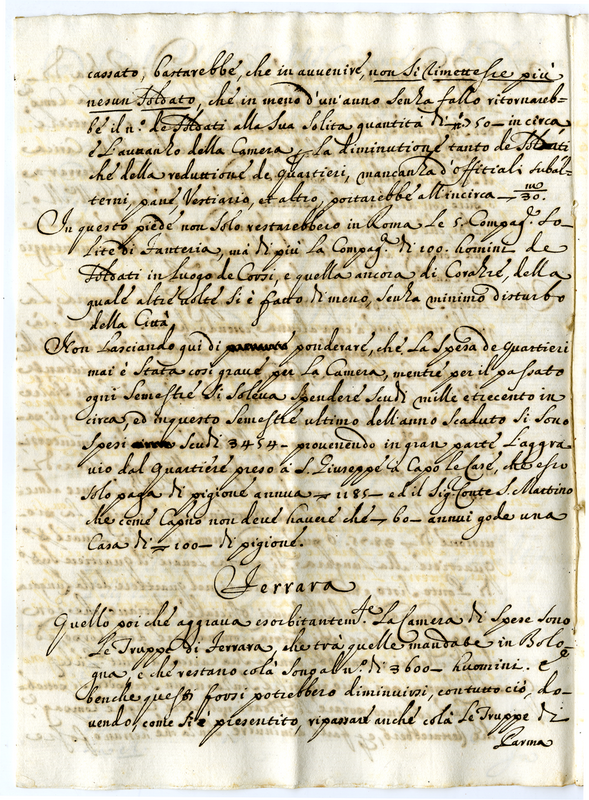 cassato, bastarebbe, che in avvenire, non si rimettesse più
nesun soldato, che in meno d'un'anno senza fallo ritornareb-
be il n.º de soldati alla sua solita quantità di n.º 750 - in circa
è l'avvanzo della Camera la diminutione tanto de soldati
che della reduttione de quartieri, mancanza d'offitiali subal-
terni, pane Vestiario, et altro, portarebbe all'incirca - m/30.
In questo piede non solo restarebbero in Roma le 5. Compag.e so-
lite di fanteria, mà di più la Compag.a di 100. homini de
soldati in luogo de Corsi, e quella ancora di Corazze, della
quale altre volte si è fatto di meno, senza minimo disturbo
della Città
Non lasciando qui di ponderare, che la spesa de quartieri
mai è stata così grave per la Camera, mentre per il passato
ogni semestre si soleva spendere scudi mille e trecento in
circa, ed in questo semestre ultimo dell'anno scaduto si sono
spesi scudi 3454 - provenendo in gran parte l'aggra
vio dal quartiere preso à S. Giuseppe à Capo le Case, che esso
solo paga di pigione annua - 1185 - ed il Sig.r Conte S. Martino
che come Cap.no non deve havere che - 60 - annui gode una
Casa di - 100 - di pigione.
Ferrara
Quello poi che aggrava esorbitantem.te la Camera di spese sono
le Truppe di Ferrara, che trà quelle mandate in Bolo-
gna, e che restano colà son al n.º di 3600 - huomini. e
benche questi forsi potrebbero diminuirsi, con tutto ciò, do-
vendo, come si è presentito, ripassare anche colà le Truppe di
Parma